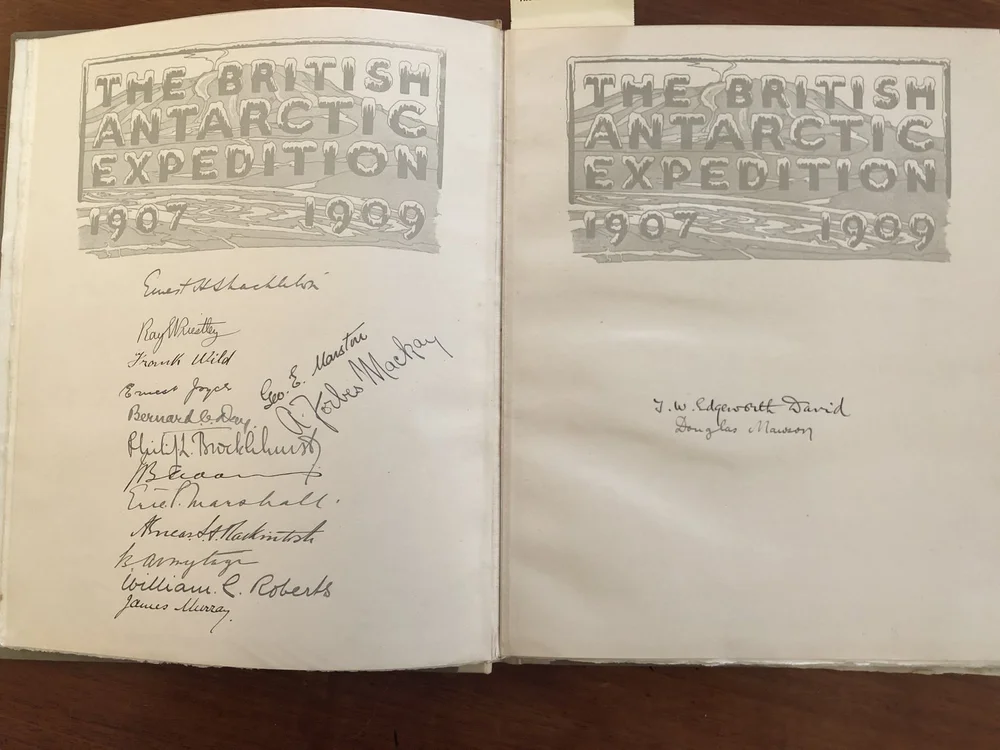 THE BRITISH
ANTARCTIC
EXPEDITION
1907 1909
Ernest H Shackleton
Raymond Priestley
Frank Wild
Ernest Joyce
Geo. E. Marston
A. Forbes Mackay
Bernard C. Day.
Philip L. Brocklehurst
Eric P. Marshall.
Aeneas L. A. Mackintosh
B Armytage
William. C. Roberts
James Murray.
THE BRITISH
ANTARCTIC
EXPEDITION
1907 1909
T. W. Edgeworth David
Douglas Mawson